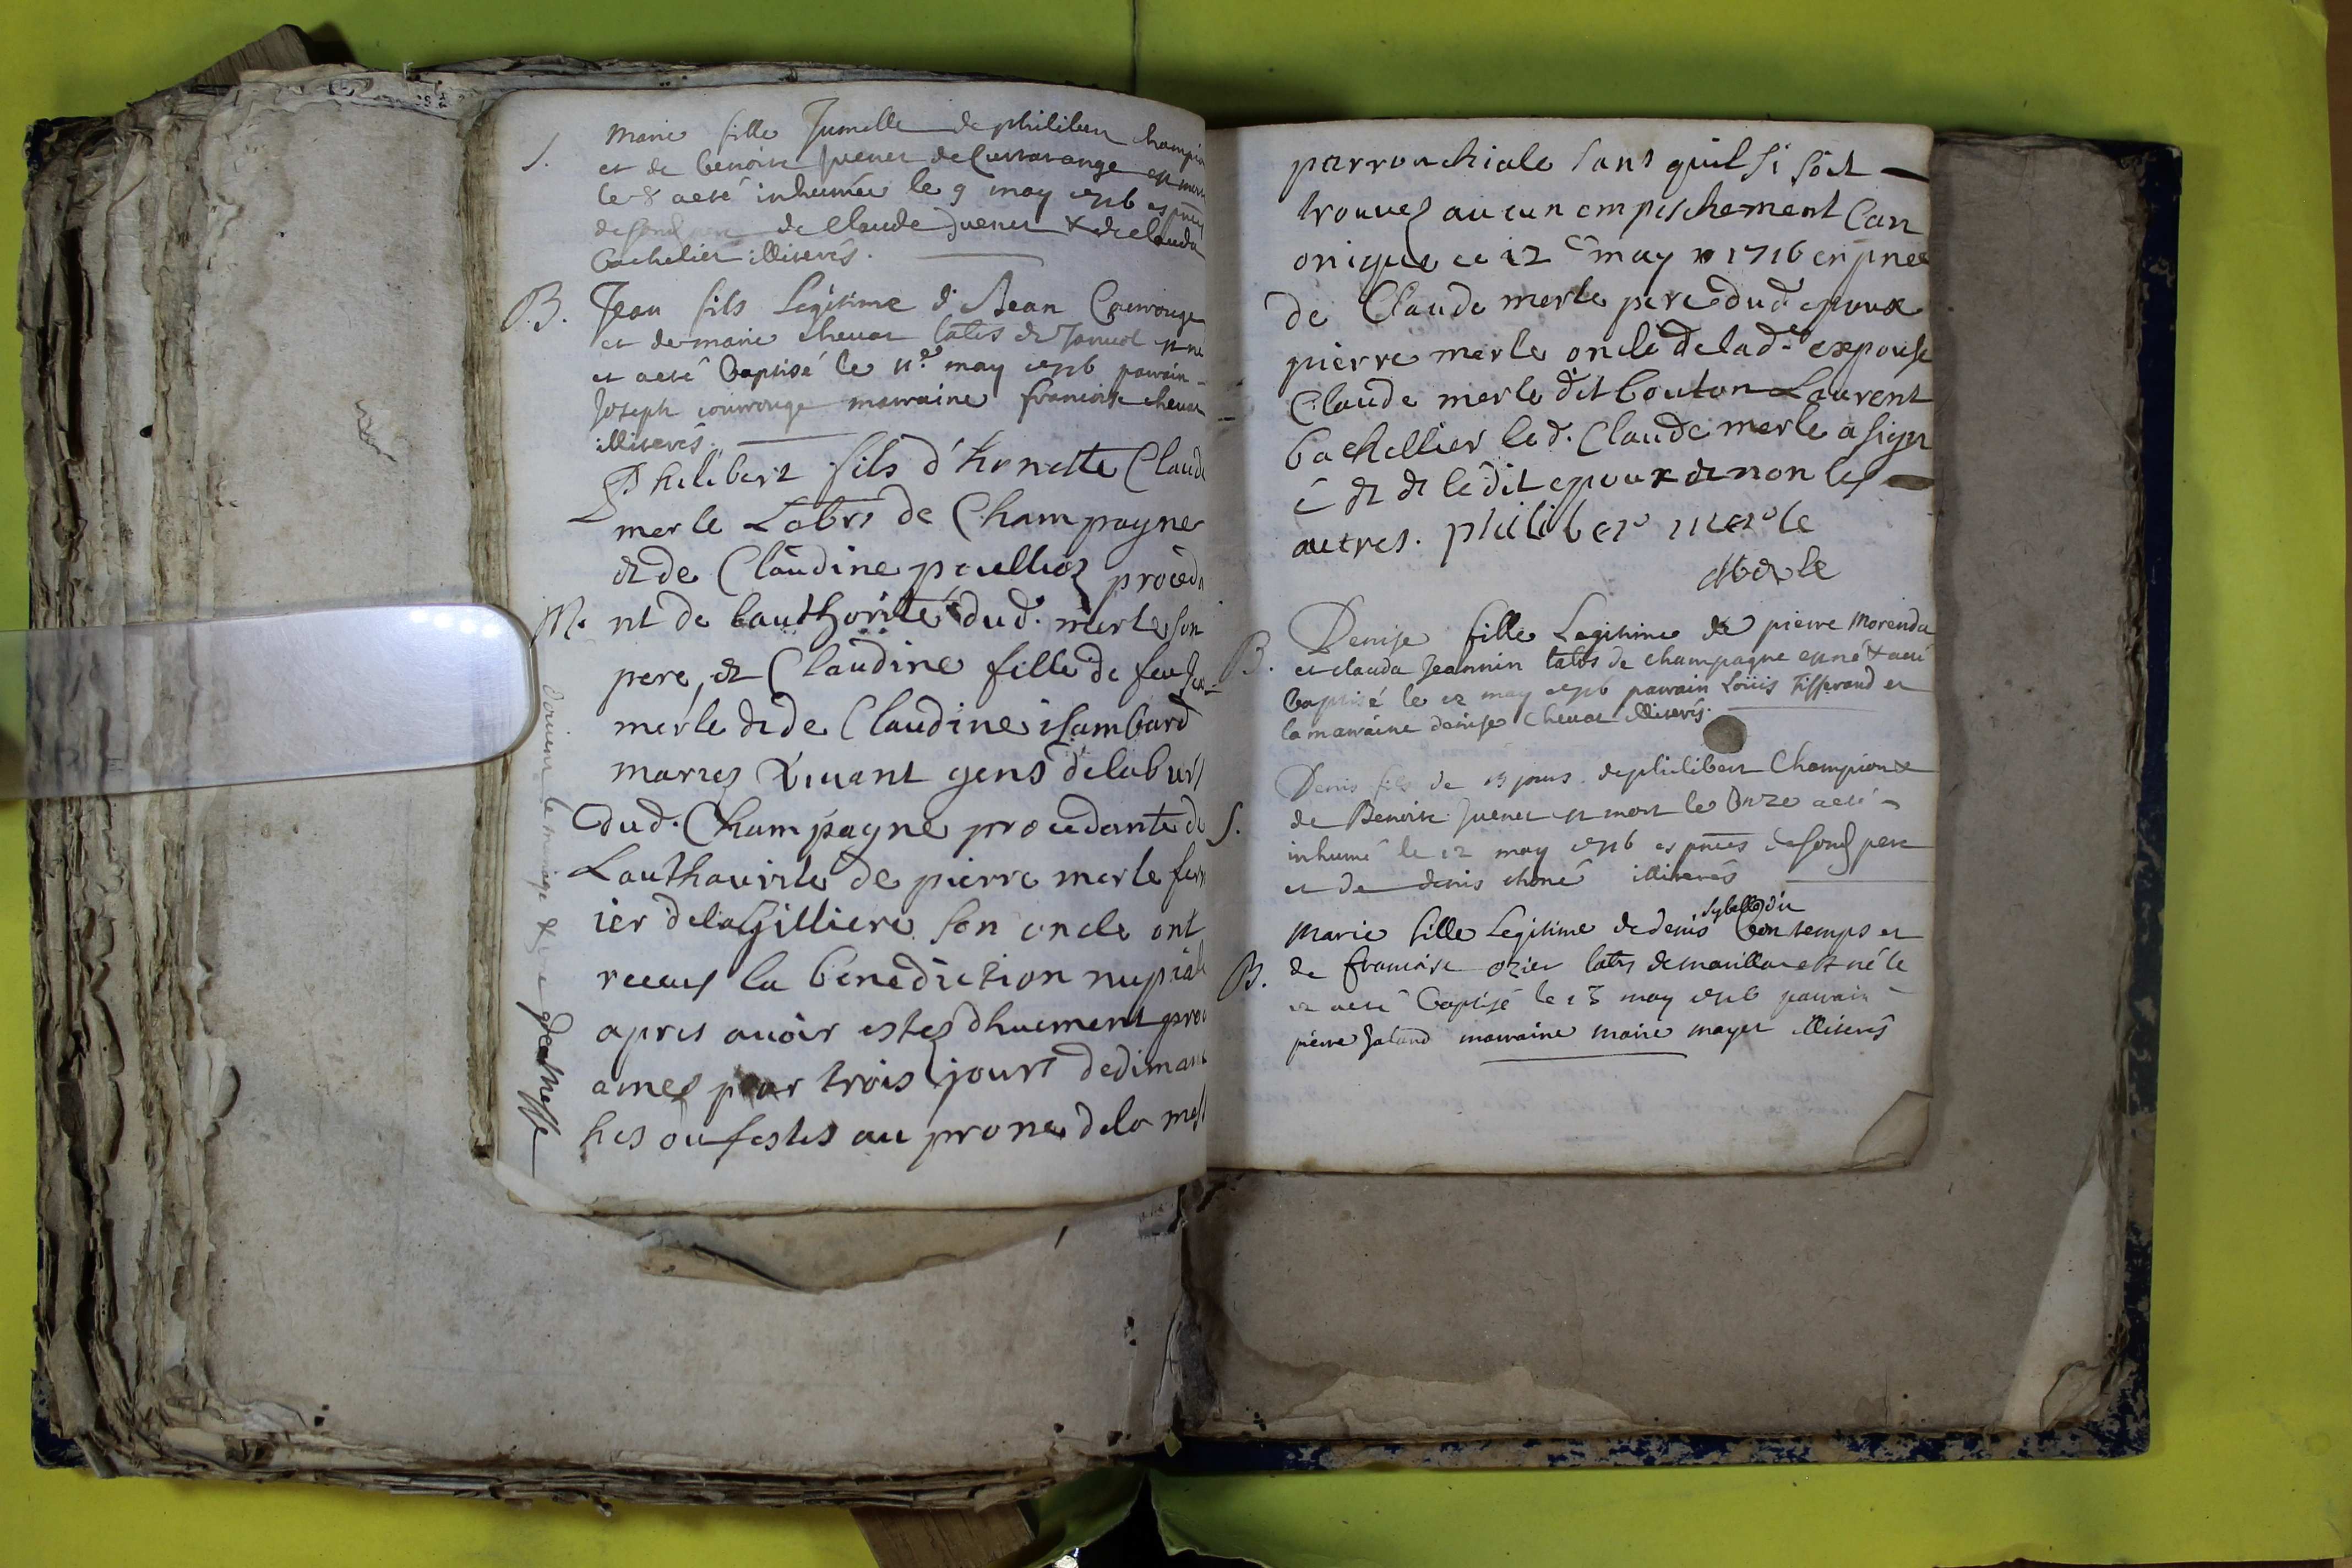 S. Marie fille Jumelle de philibert champion
et de benoiste Juenet de Cuvarange est morte
le 8 a eté inhumée le 9 may 1716 es pnces
de son pere de Claude Juenet & de Clauda
bachelier illiterés.
B. Jean fils Legitime de Jean Couvrouge
et de marie chevat labrs de est né
et a eté baptisé le 11e may 1716 parrain
Joseph couvrouge marraine francoise chevat
illiterés.
Philibert fils d'honeste Claude
merle Labrs de Champagne
et de Claudine poullioz proceda
M. nt de lauthorité dud. merle son
pere, et Claudine fille de feu
merle et de Claudine isambard
marrez vivant gens de labeur
dud. Champagne procedante de
Lauthaurite de pierre merle ferm
ier de la Gilliere son oncle ont
receus la benediction nuptiale
apres avoir estes dhuement procl
ames par trois jours dedimanc
hes ou festes au prone de la mess
parrouchiale sans quil si soit
trouvez aucun empeschement Can
onique ce 12e may 1716 en pnce
de Claude merle pere dud epoux
pierre merle oncle de lad.e expouse
Claude merle dit bouton Laurent
bachellier led. Claude merle a sign
é et et ledit epoux et non les
autres. philiber merle
Merle
B. Denise fille Legitime de pierre Morendu
et clauda Jeannin labrs de champagne est né & a eté
baptisé le 12 may 1716 parrain Loüis Tisserand et
la marraine denise Chevat illiterés.
Denis fils de 13 jours de philibert Champion &
S. de Benoiste Juenet est mort le Onze a eté
inhumé le 12 may 1716 es pnces de son pere
et de denis choné illiterés
sybelle dit
Marie fille Legitime de denis bontemps et
B. de francoise ozier labrs de marillat est né le
et a eté baptisé le 13 may 1716 parrain
pierre galand marraine marie mayet illiterés